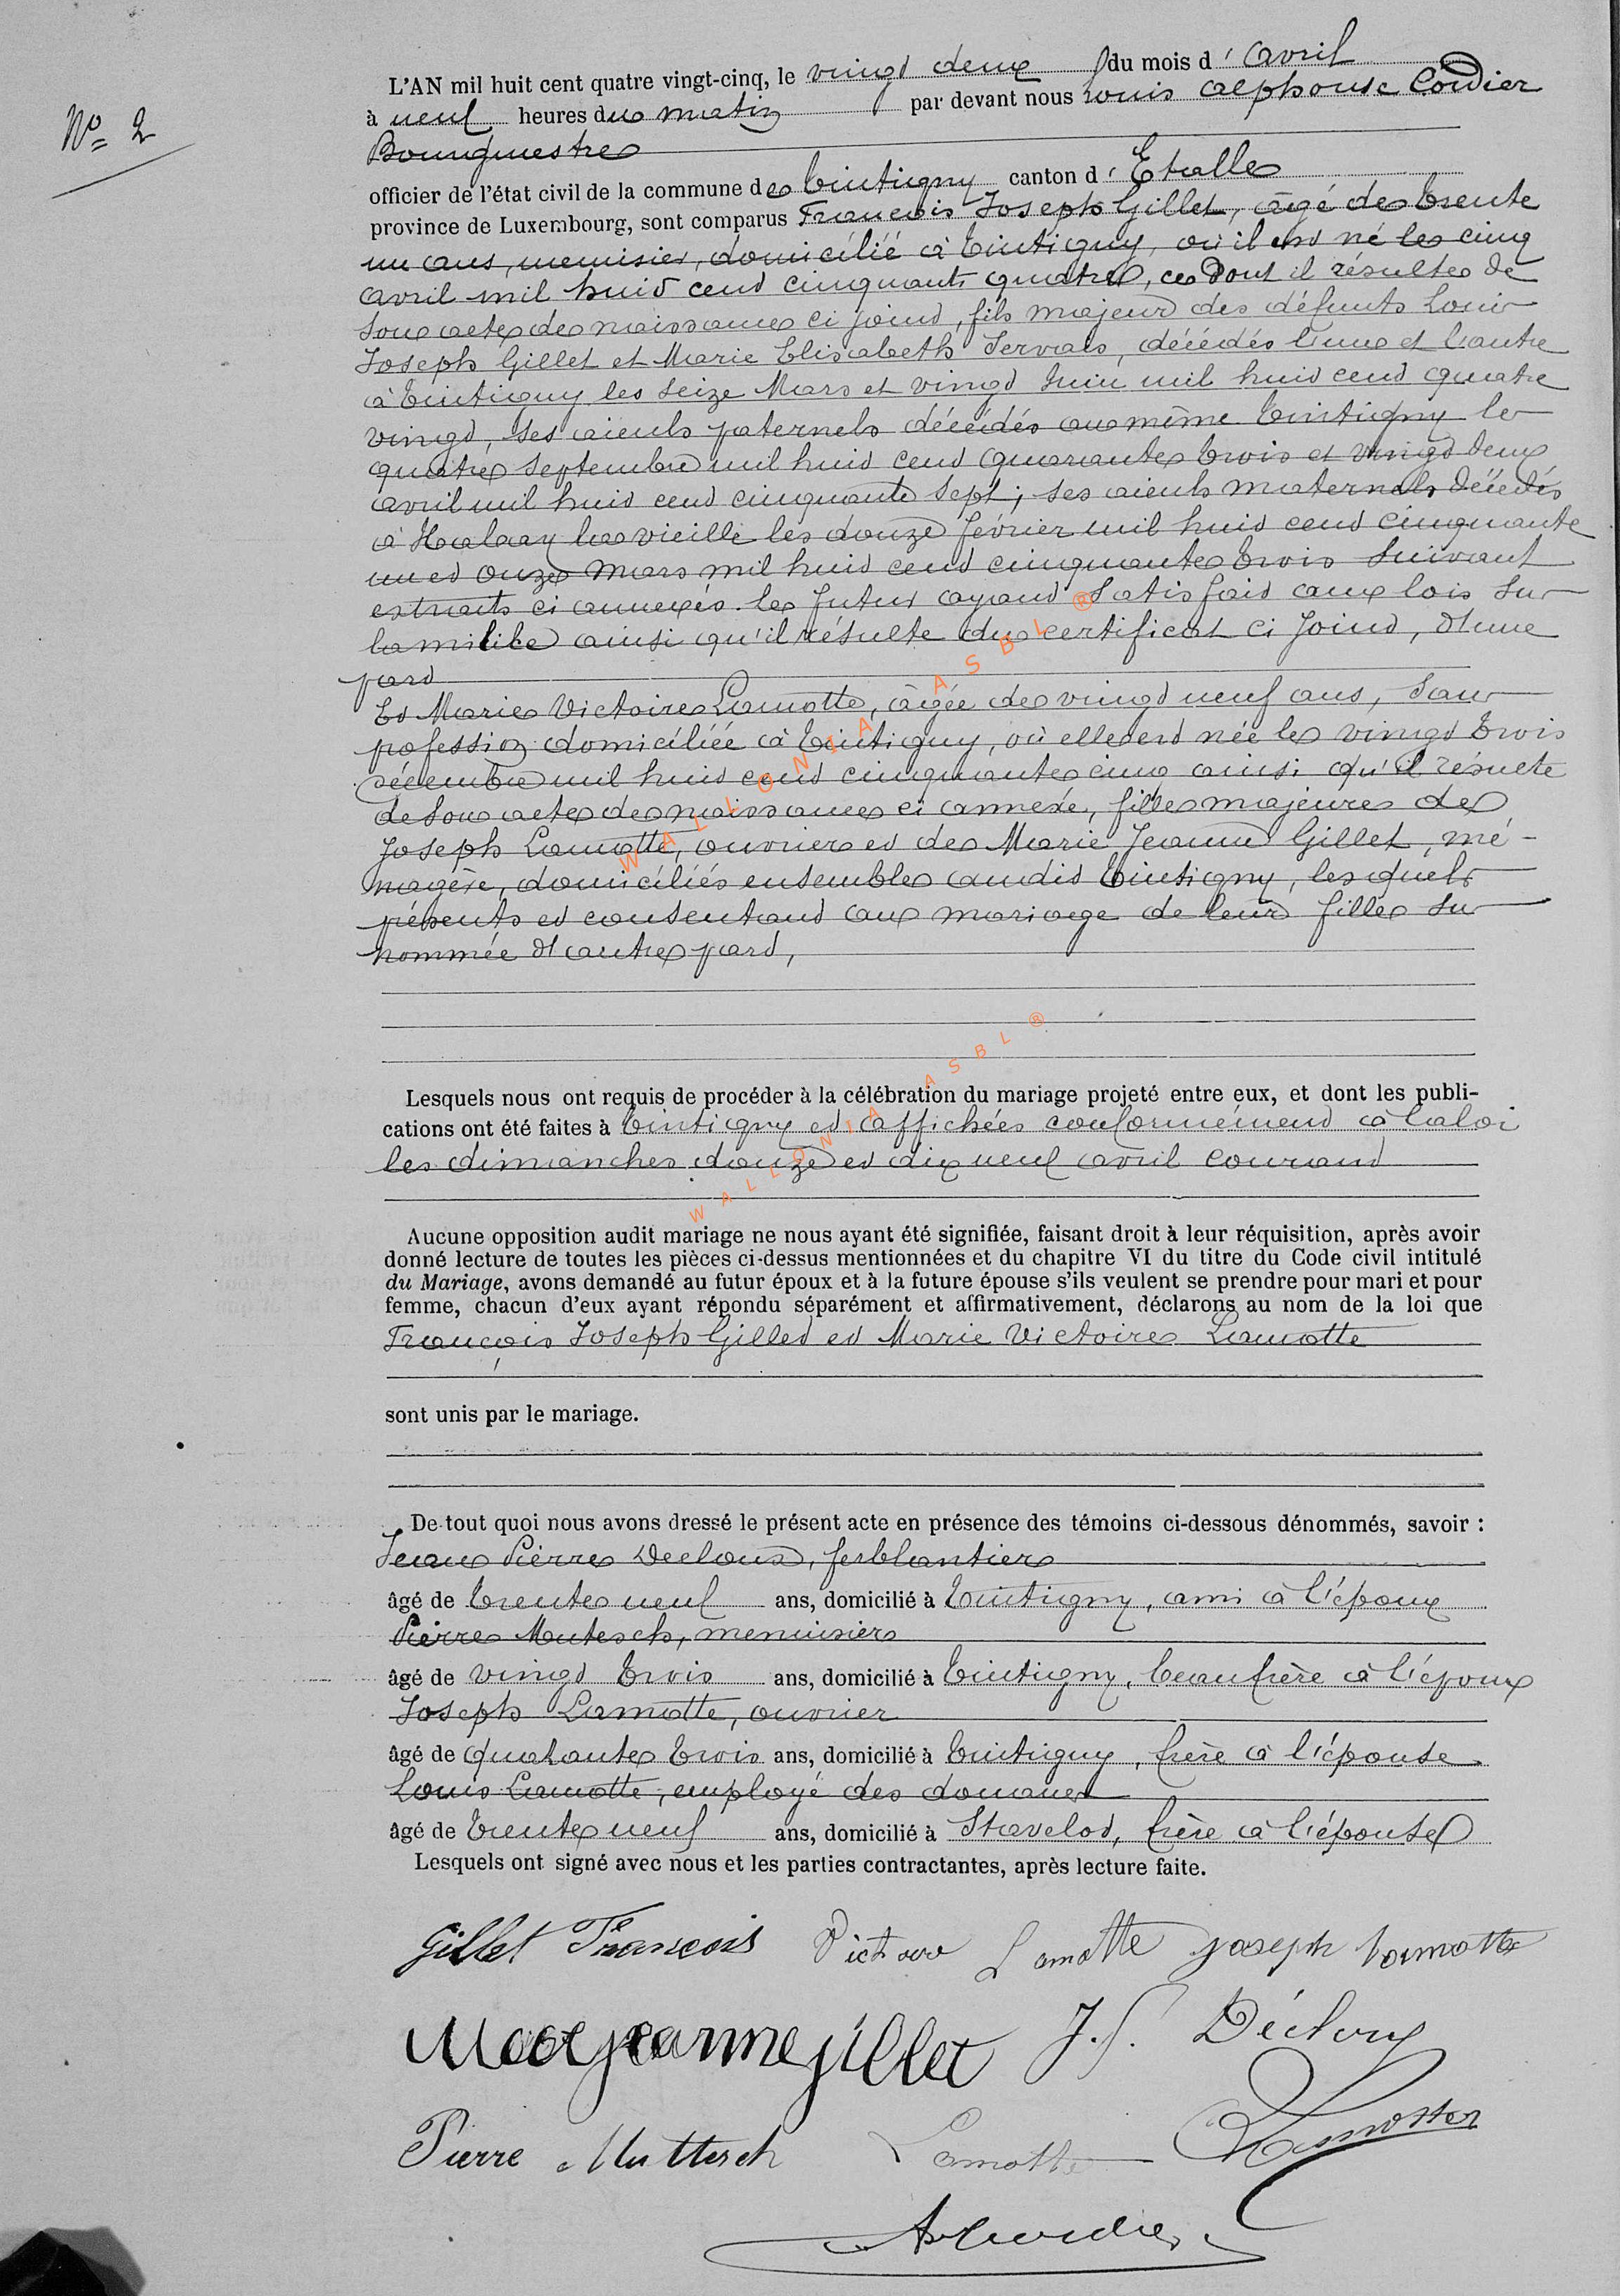 N° 2
L'AN mil huit cent quatre vingt-cinq, le vingt deux du mois d'avril
à neuf heures du matin par devant nous Louis Alphonse Cordier
Bourgmestre
officier de l'état civil de la commune de Tintigny canton d'Etalle
province de Luxembourg, sont comparus François Joseph Gillet, âgé de trente
un ans, menuisier, domicilié à Tintigny, où il est né le cinq
avril mil huit cent cinquante quatre, ce dont il résulte de
son acte de naissance ci joint, fils majeur des défunts Louis
Joseph Gillet et Marie Elisabeth Servais, décédés l'un et l'autre
à Tintigny les seize Mars et vingt Juin mil huit cent quatre
vingt, ses aïeuls paternels décédés au même Tintigny le
quatre septembre mil huit cent quarante trois et vingt deux
avril mil huit cent cinquante sept; ses aïeuls maternels décédés
à Halanzy la vieille les douze février mil huit cent cinquante
un et onze Mars mil huit cent cinquante trois suivant
extraits ci annexés. le futur ayant satisfait aux lois sur
la milice ainsi qu'il résulte du certificat ci joint, d'une
part
Et Marie Victoire Lamotte, âgée de vingt neuf ans, sans
pofession domiciliée à Tintigny, où elle est née le vingt trois
décembre mil huit cent cinquante cinq ainsi qu'il résulte
de son acte de naissance ci annexé, fille majeure de
Joseph Lamotte, ouvrier et de Marie Jeanne Gillet, mé-
nagère, domiciliés ensemble audit Tintigny, lesquels
présents et consentant au mariage de leur fille sur
nommée d'autre part,
Lesquels nous ont requis de procéder à la célébration du mariage projeté entre eux, et dont les publi-
cations ont été faites à Tintigny et affichées conformément à la loi
les dimanches douze et dix neuf avril courant
Aucune opposition audit mariage ne nous ayant été signifiée, faisant droit à leur réquisition, après avoir
donné lecture de toutes les pièces ci-dessus mentionnées et du chapitre VI du titre du Code civil intitulé
du Mariage, avons demandé au futur époux et à la future épouse s'ils veulent se prendre pour mari et pour
femme, chacun d'eux ayant répondu séparément et affirmativement, déclarons au nom de la loi que
François Joseph Gillet et Marie Victoire Lamotte
sont unis par le mariage.
De tout quoi nous avons dressé le présent acte en présence des témoins ci-dessous dénommés, savoir :
Jean Pierre Decloux, ferblantier
âgé de trente neuf ans, domicilié à Tintigny, ami à l'époux
Pierre Mutesch, menuisier
âgé de vingt trois ans, domicilié à Tintigny, beaufrère à l'époux
Joseph Lamotte, ouvrier
âgé de quarante trois ans, domicilié à Tintigny, frère à l'épouse
Louis Lamotte, employé des douanes
âgé de trente neuf ans, domicilié à Stavelot, frère à l'épouse
Lesquels ont signé avec nous et les parties contractantes, après lecture faite.
Gillet François Victoire Lamotte Joseph Lamotte
Marjeanne jillet J. P. Décloux
Pierre Muttesch Lamotte Lamotte
A Cordier
WALLONIA ASBL ®
WALLONIA ASBL ®